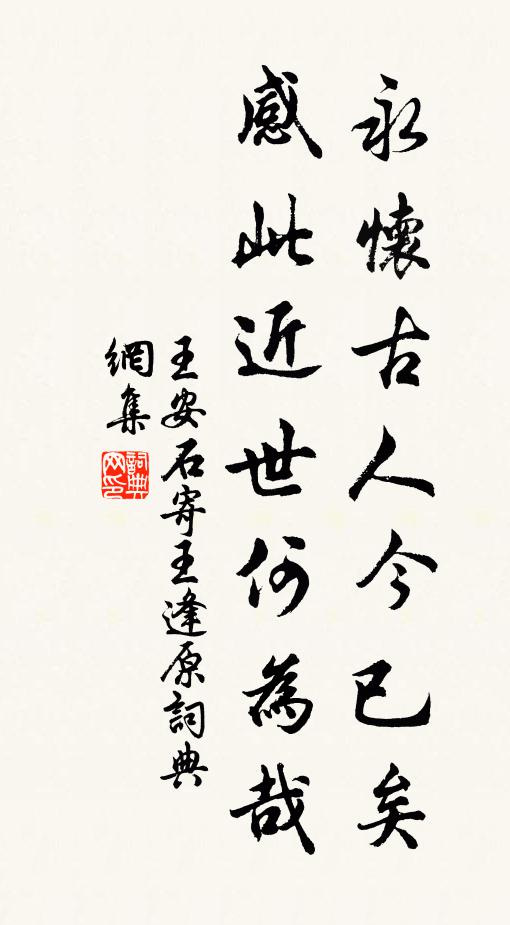 永懷古人今已矣
感此近世何為哉
王安石寄王逢原詞典
網集
詞典
网印